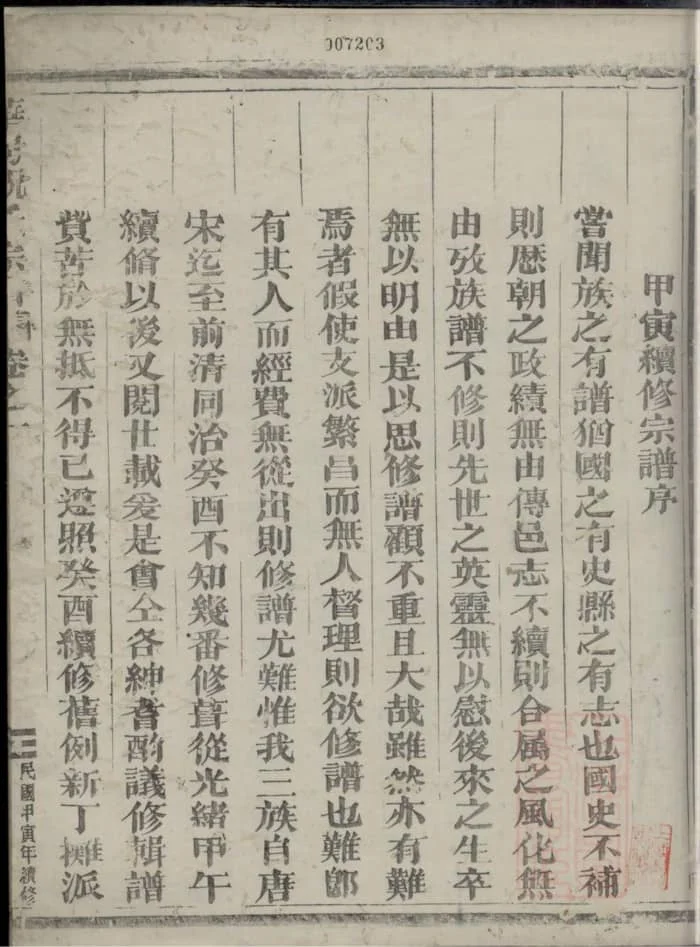 007203
甲寅續修宗譜序
嘗聞族之有譜猶國之有史縣之有志也國史不補
則歷朝之政績無由傳邑志不續則合属之風化無
由攷族譜不修則先世之英靈無以慰後來之生卒
無以明由是以思修譜顧不重且大哉雖然亦有難
焉者假使支派繁昌而無人督理則欲修譜也難卽
有其人而經費無從出則修譜尤難惟我三族自唐
宋迄至前清同治癸酉不知幾番修葺從光緒甲午
續脩以後又閱廿載爰是會仝各紳耆酌議修輯譜
費苦於無抵不得已遵照癸酉續修舊例新丁攤派
宗譜 卷之一
民國甲寅年續修